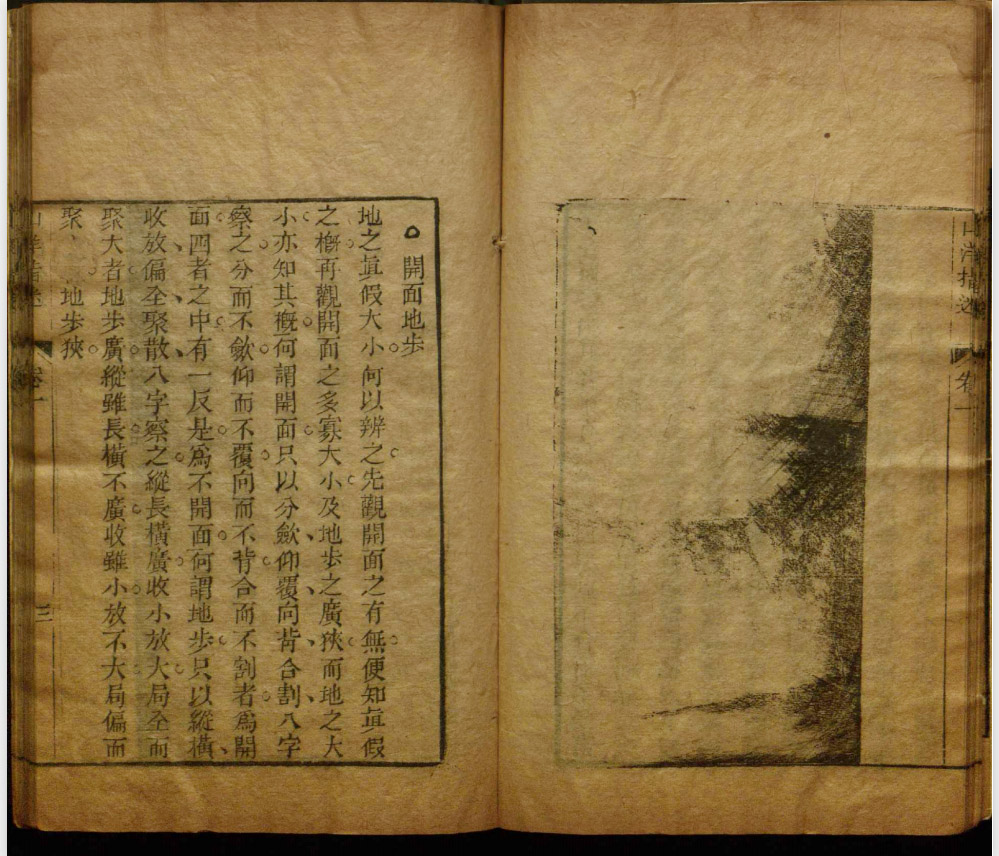 山洋指迷
卷一
開面地步
地之真假大小何以辨之先觀開面之有無便知真假
之槪再觀開面之多寡大小及地步之廣狹而地之大
小亦知其槪何謂開面只以分歛仰覆向背合割八字
察之分而不歛仰而不覆向而不背合而不割者爲開
面四者之中有一反是爲不開面何謂地步只以縱橫
收放偏全聚散八字察之縱長橫廣收小放大局全而
聚大者地步廣縱雖長橫不廣收雖小放不大局偏而
聚 地步狹
卷一
三